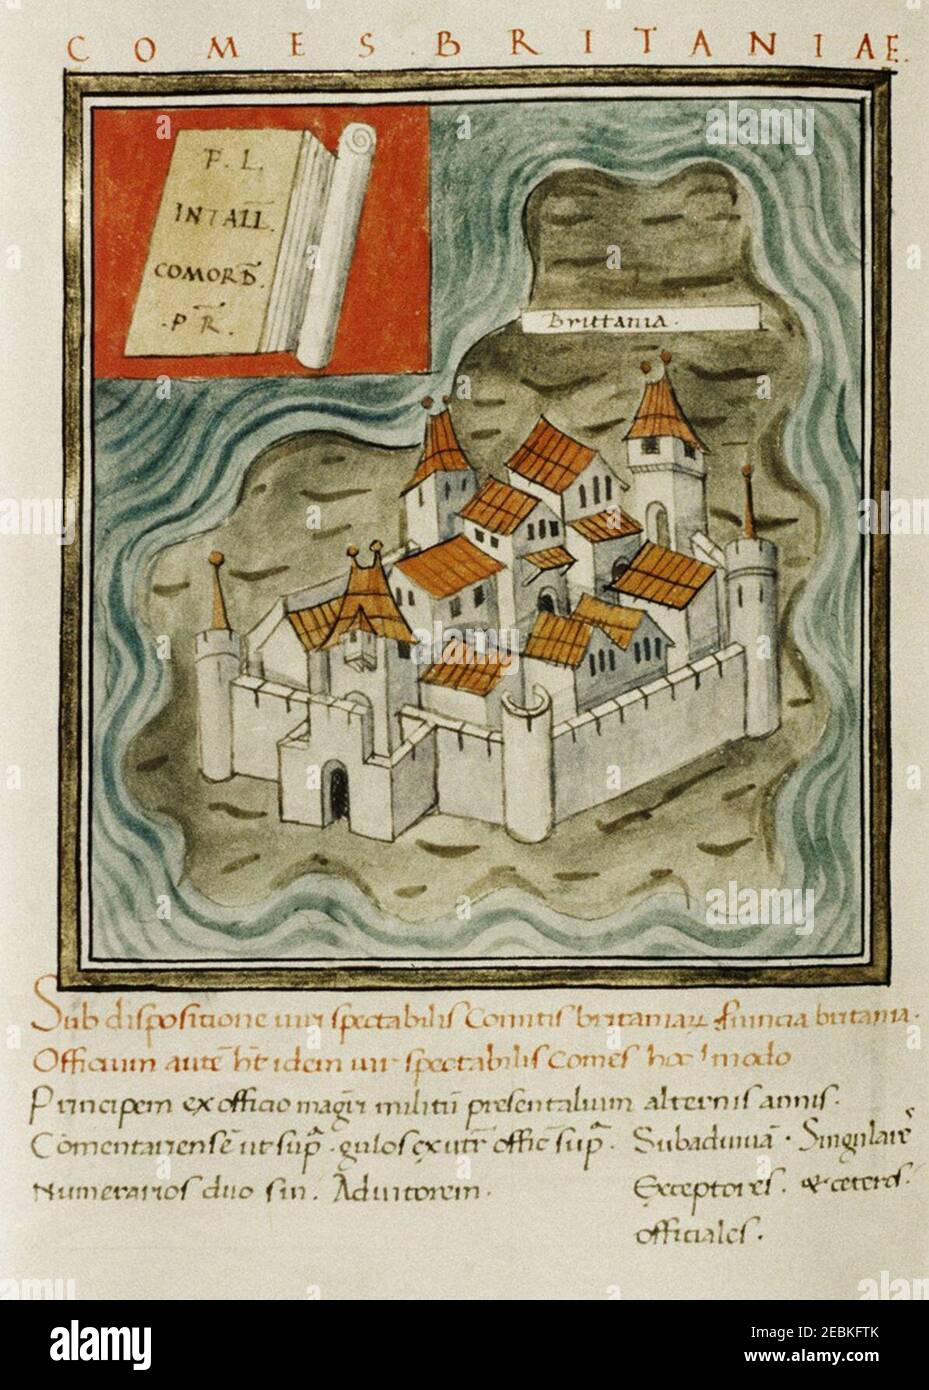 COMES BRITANIAE.
F. L.
INTALL.
COMORD.
.P R.
Brittania.
Sub dispositione viri spectabilis Comitis britaniarum provincia britania.
Officium autē hēt idem vir spectabilis Comes hoc modo
Principem ex officio magr̄i militū presentalium alternis annis.
Comentariensē ut sup̄a. gulos ex utr̄ offic̄ sup̄a. Subadiuuā. Singularē
Numerarios duo sin. Adiutorem. Exceptores. & ceteros.
officiales.
alamy
Image ID: 2EBKFTK
www.alamy.com